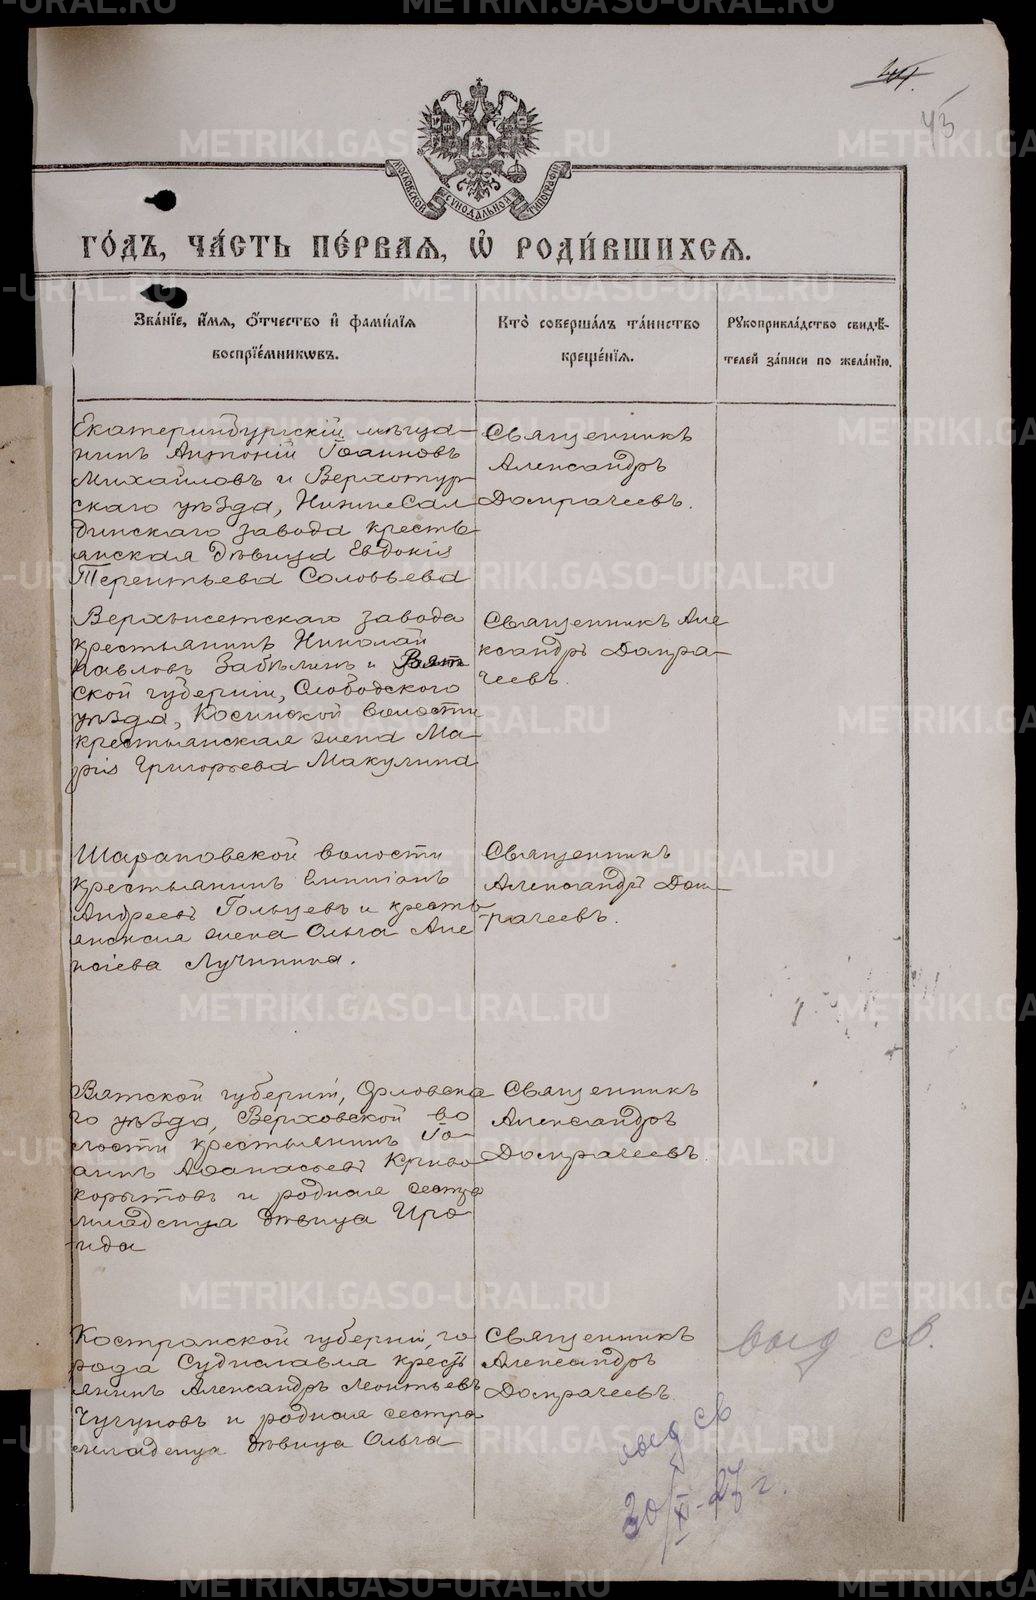 44.
43
МОСКОВСКОЙ СѴНОДАЛЬНОЙ ТИПОГРАФІИ
го́дъ, ча́сть пе́рваѧ, ѡ҆ роди́вшихсѧ.
Зва́нїе, и҆́мѧ, ѻ҆́тчество и҆ фамилїѧ
воспрїе́мникѡвъ.
Кто̀ соверша́лъ та́инство
креще́нїѧ.
Рꙋкоприкла́дство свидѣ́-
телей за́писи по жела́нїю.
Екатеринбургскій мѣща-
нинъ Антоній Іоанновъ
Михайловъ и Верхотур
скаго уѣзда, НижнеСал
динскаго завода кресть
янская дѣвица Евдокія
Терентьева Соловьева
Священникъ
Александръ
Домрачеевъ.
Верхъисетскаго завода
крестьянинъ Николай
Павловъ Забѣлинъ и Вят
ской губерніи, Слободского
уѣзда, Косинской волости
крестьянская жена Ма-
рія Григорьева Макулина
Священникъ Але
ксандръ Домра-
чеевъ.
Шараповской волости
крестьянинъ Емиліанъ
Андреевъ Гольцевъ и кресть
янская жена Ольга Але
ксіева Лучинина.
Священникъ
Александръ Дом-
рачеевъ.
Вятской губерніи, Орловска
го уѣзда, Верховской во
лости крестьянинъ Іо-
аннъ Аѳанасьевъ Криво
корытовъ и родная сестра
младенца дѣвица Ира-
ида
Священникъ
Александръ
Домрачеевъ.
Костромской губерніи, го
рода Судиславля кресть
янинъ Александръ Леонтьевъ
Чугуновъ и родная сестра
младенца дѣвица Ольга
Священникъ
Александръ
Домрачеевъ.
выд св.
выд св
30/XI-27 г.
METRIKI.GASO-URAL.RU